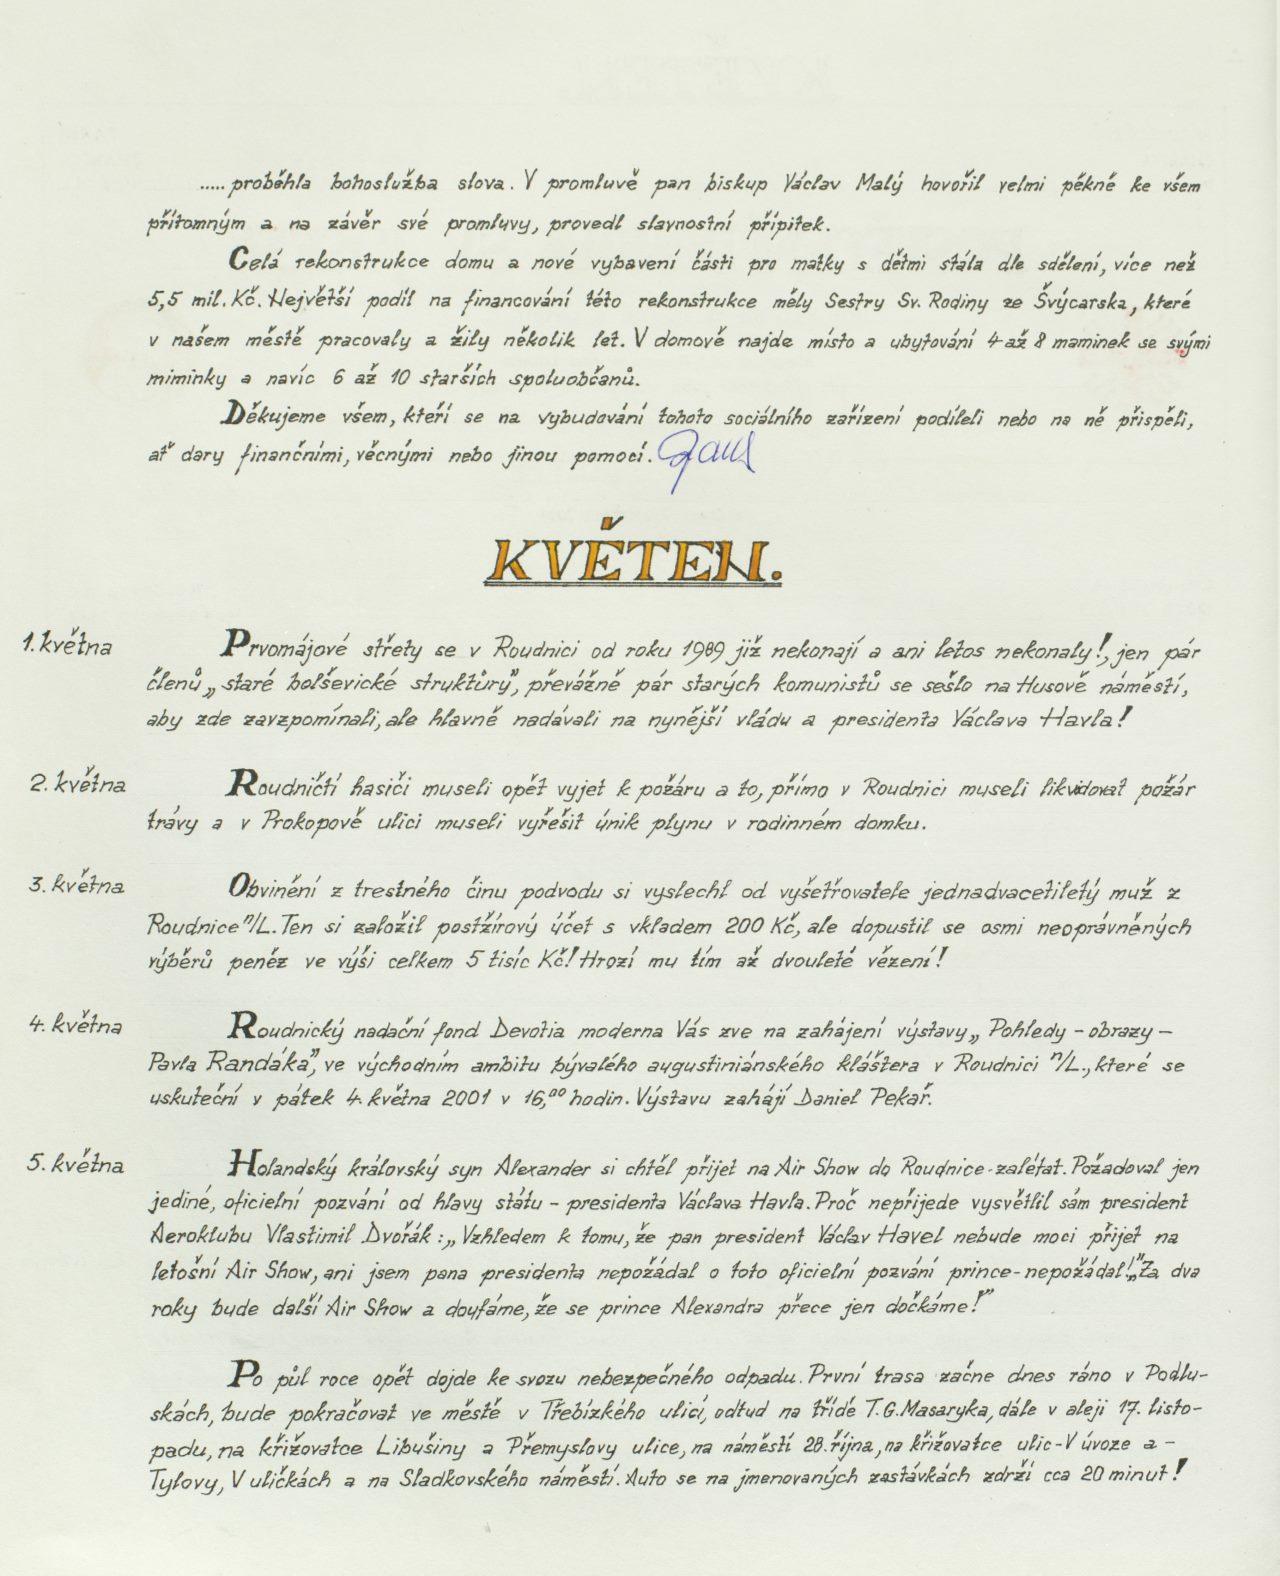 ..... proběhla bohoslužba slova. V promluvě pan biskup Václav Malý hovořil velmi pěkně ke všem
přítomným a na závěr své promluvy, provedl slavnostní přípitek.
Celá rekonstrukce domu a nové vybavení části pro matky s dětmi stála dle sdělení, více než
5,5 mil. Kč. Největší podíl na financování této rekonstrukce měly Sestry Sv. Rodiny ze Švýcarska, které
v našem městě pracovaly a žily několik let. V domově najde místo a ubytování 4 až 8 maminek se svými
miminky a navíc 6 až 10 starších spoluobčanů.
Děkujeme všem, kteří se na vybudování tohoto sociálního zařízení podíleli nebo na ně přispěli,
ať dary finančními, věcnými nebo jinou pomocí.
KVĚTEN.
1. května Prvomájové střety se v Roudnici od roku 1989 již nekonají a ani letos nekonaly!, jen pár
členů „staré bolševické struktůry", převážně pár starých komunistů se sešlo na Husově náměstí,
aby zde zavzpomínali, ale hlavně nadávali na nynější vládu a presidenta Václava Havla!
2. května Roudničtí hasiči museli opět vyjet k požáru a to, přímo v Roudnici museli likvidovat požár
trávy a v Prokopově ulici museli vyřešit únik plynu v rodinném domku.
3. května Obvinění z trestného činu podvodu si vyslechl od vyšetřovatele jednadvacetiletý muž z
Roudnice n/L. Ten si založil postžírový účet s vkladem 200 Kč, ale dopustil se osmi neoprávněných
výběrů peněz ve výši celkem 5 tisíc Kč! Hrozí mu tím až dvouleté vězení!
4. května Roudnický nadační fond Devotia moderna Vás zve na zahájení výstavy „Pohledy - obrazy -
Pavla Randáka", ve východním ambitu bývalého augustiniánského kláštera v Roudnici n/L., které se
uskuteční v pátek 4. května 2001 v 16,00 hodin. Výstavu zahájí Daniel Pekař.
5. května Holandský královský syn Alexander si chtěl přijet na Air Show do Roudnice - zalétat. Požadoval jen
jediné, oficielní pozvání od hlavy státu - presidenta Václava Havla. Proč nepřijede vysvětlil sám president
Aeroklubu Vlastimil Dvořák: „Vzhledem k tomu, že pan president Václav Havel nebude moci přijet na
letošní Air Show, ani jsem pana presidenta nepožádal o toto oficielní pozvání prince - nepožádal!" „Za dva
roky bude další Air Show a doufáme, že se prince Alexandra přece jen dočkáme!"
Po půl roce opět dojde ke svozu nebezpečného odpadu. První trasa začne dnes ráno v Podlu-
skách, bude pokračovat ve městě v Třebízkého ulici, odtud na třídě T.G.Masaryka, dále v aleji 17. listo-
padu, na křižovatce Libušiny a Přemyslovy ulice, na náměstí 28. října, na křižovatce ulic - V úvoze a -
Tylovy, V uličkách a na Sladkovského náměstí. Auto se na jmenovaných zastávkách zdrží cca 20 minut!